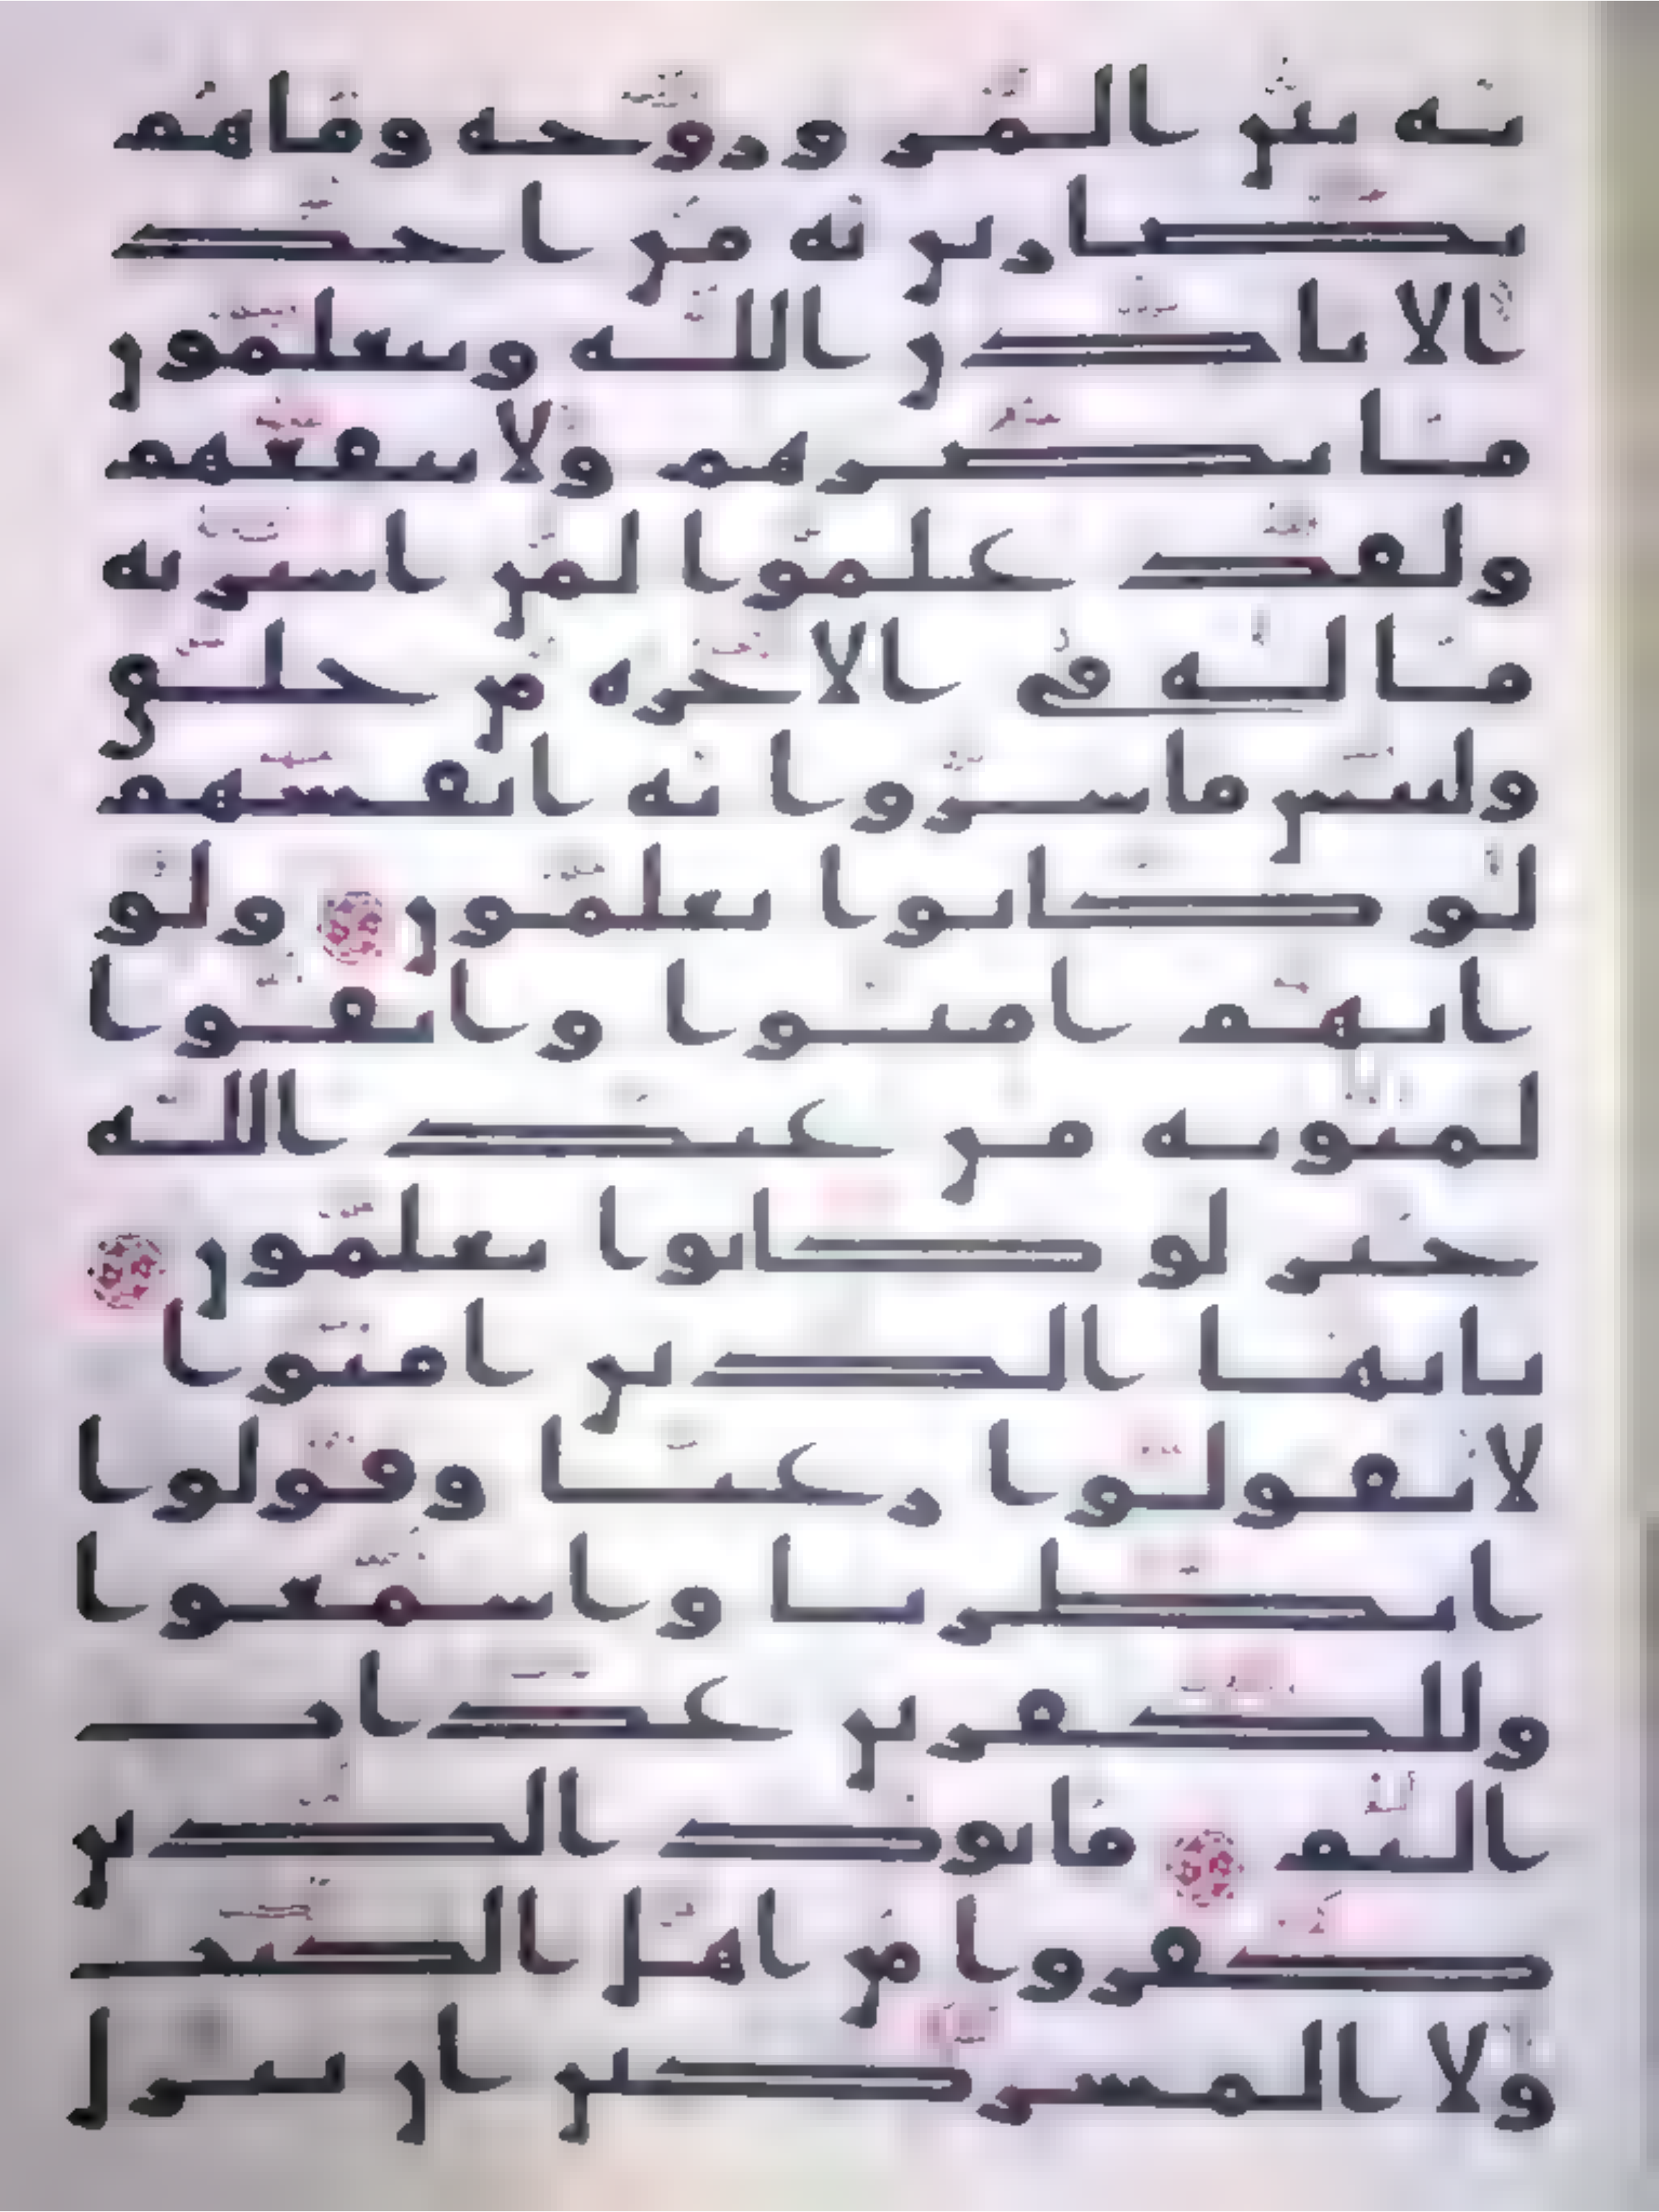 به بين المر وزوجه وما هم
بضارين به من احد
الا باذن الله ويتعلمون
ما يضرهم ولا ينفعهم
ولقد علموا لمن اشتريه
ما له في الاخرة من خلق
ولبيس ما شروا به انفسهم
لو كانوا يعلمون ولو
انهم امنوا واتقوا
لمثوبة من عند الله
خير لو كانوا يعلمون
يايها الذين امنوا
لا تقولوا رعنا وقولوا
انظرنا واسمعوا
وللكفرين عذاب
اليم ما يود الذين
كفروا من اهل الكتب
ولا المشركين ان ينزل